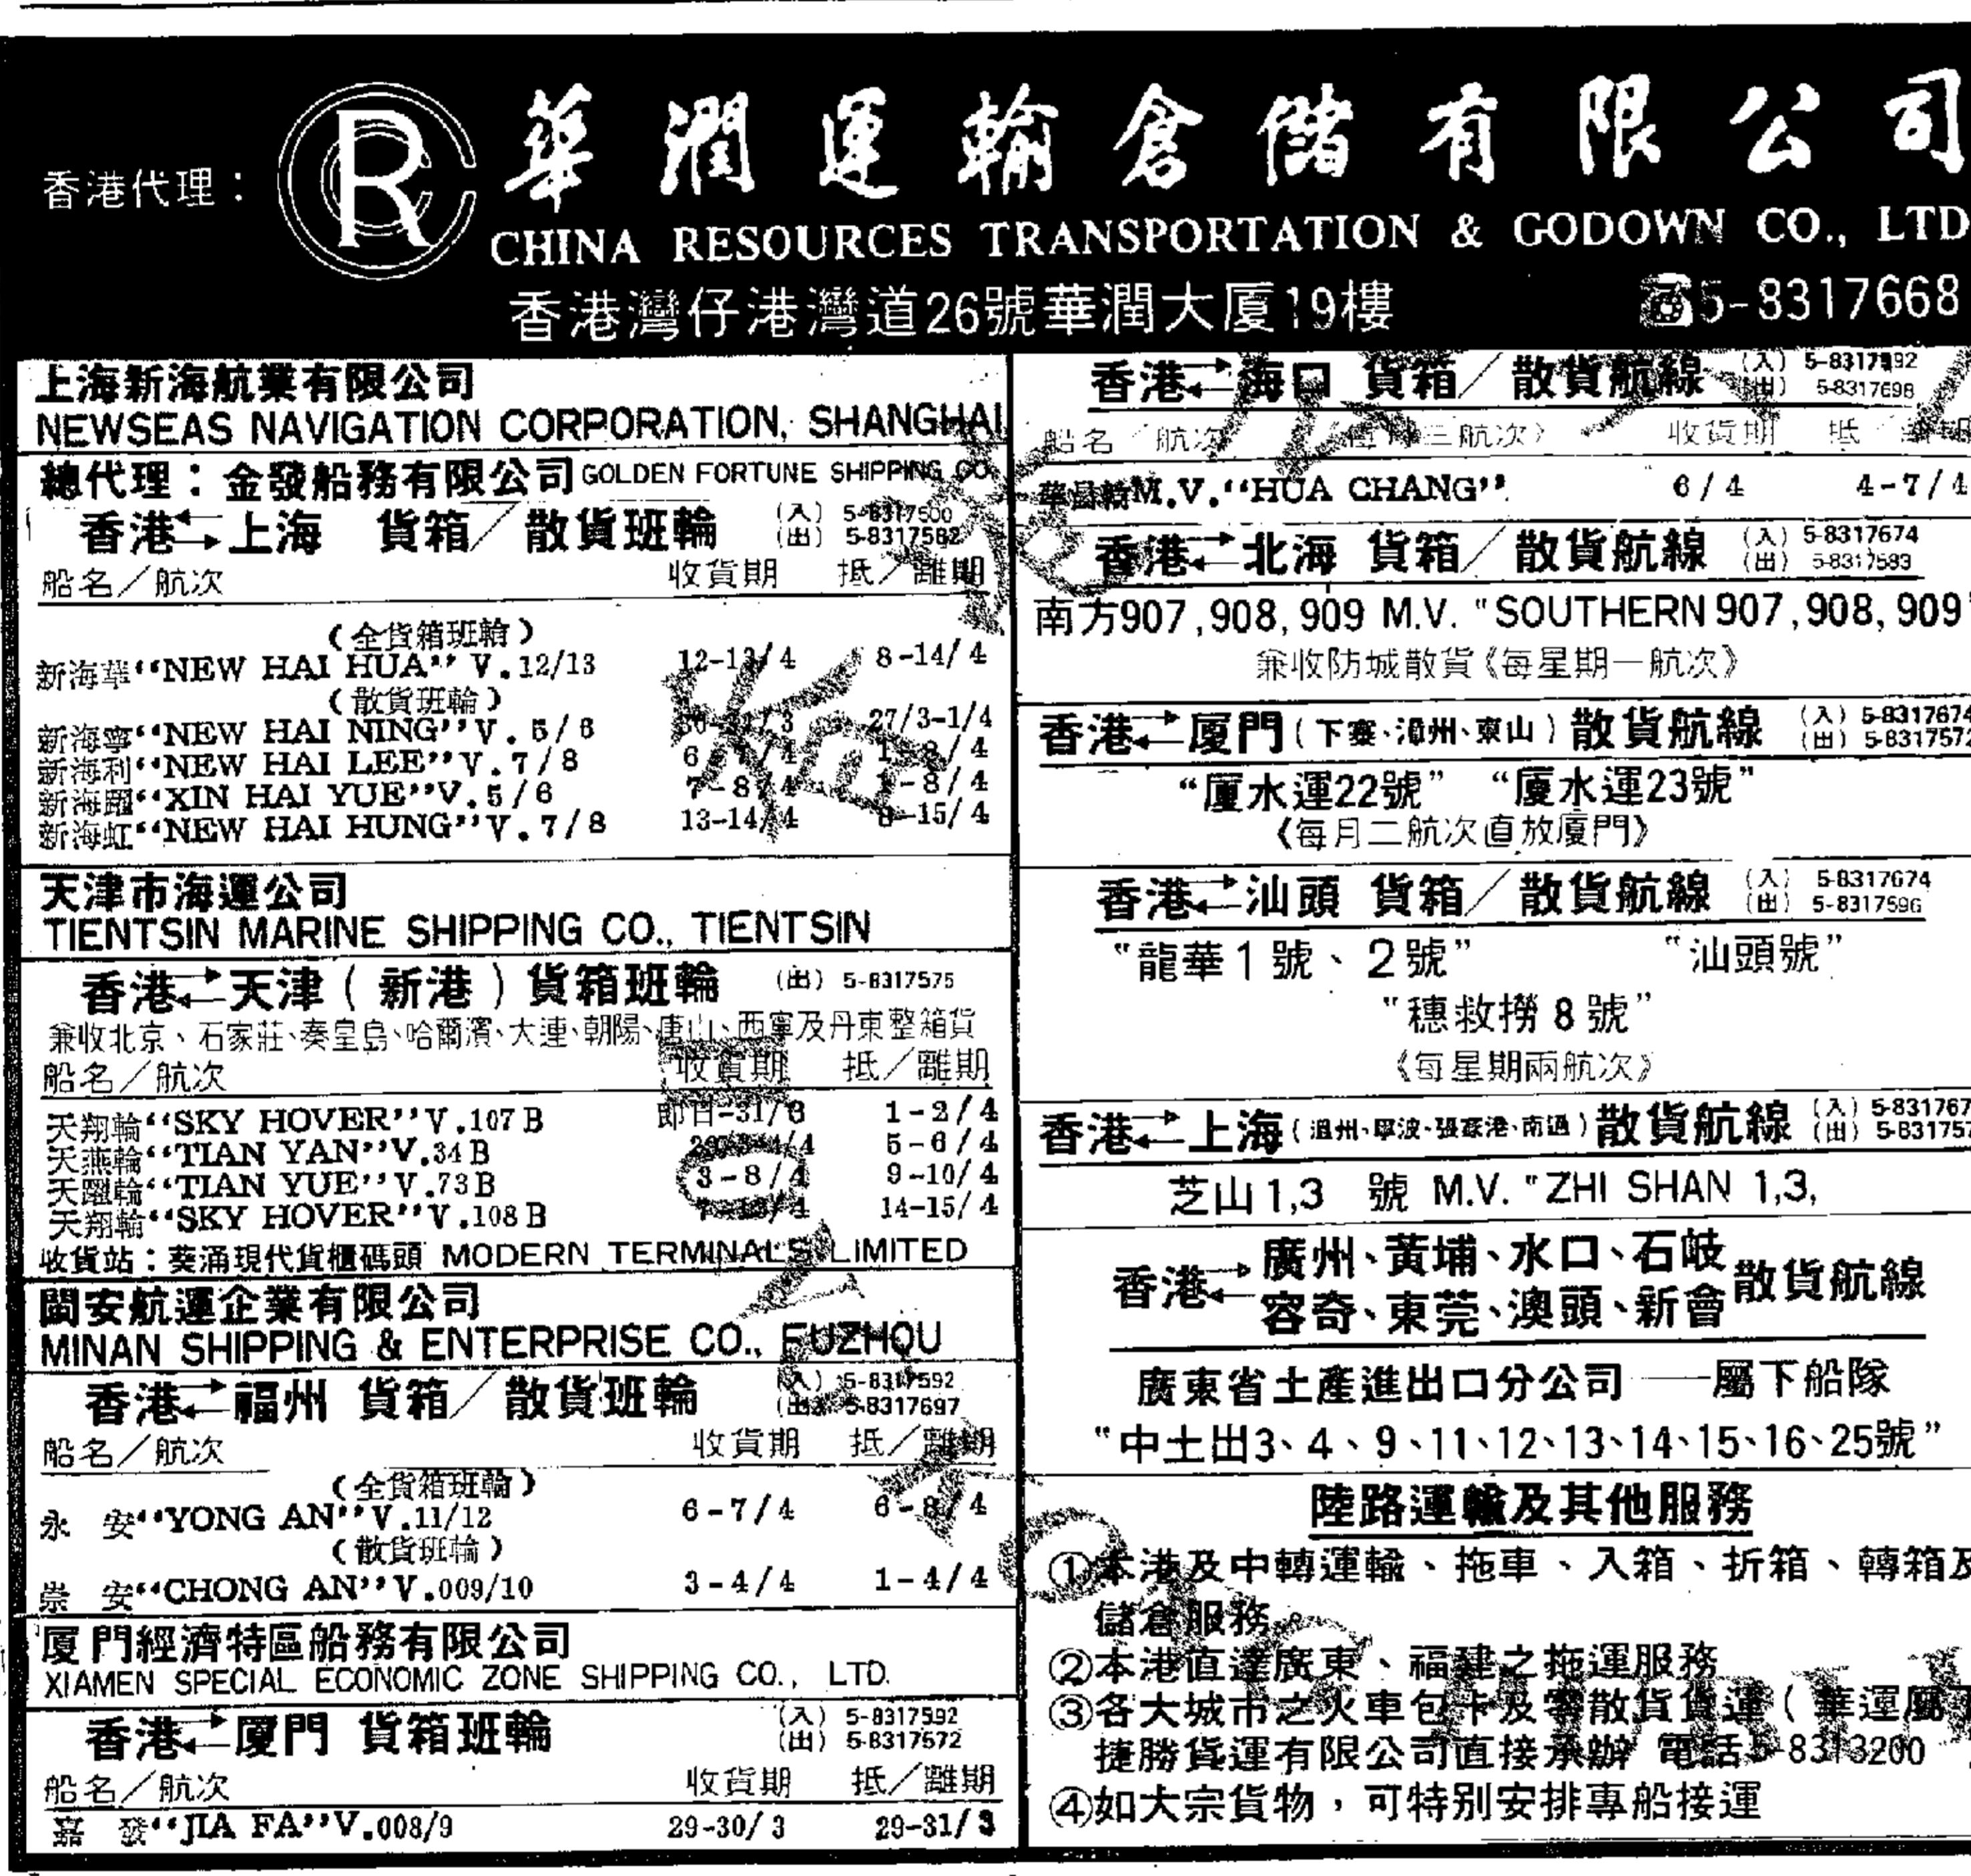 香港代理：
華潤運輸倉儲有限公司
CHINA RESOURCES TRANSPORTATION & GODOWN CO., LTD
香港灣仔港灣道26號華潤大厦19樓 ☎5-8317668
上海新海航業有限公司
NEWSEAS NAVIGATION CORPORATION, SHANGHAI
總代理：金發船務有限公司 GOLDEN FORTUNE SHIPPING CO.
香港⇄上海 貨箱／散貨班輪 (入) 5-8317500
(出) 5-8317582
船名／航次 收貨期 抵／離期
(全貨箱班輪)
新海華“NEW HAI HUA” V.12/13 12-13/4 8-14/4
(散貨班輪)
新海寧“NEW HAI NING” V.5/6 27/3-1/4
新海利“NEW HAI LEE” V.7/8
新海"XIN HAI YUE" V.5/6 7-8/4 1-8/4
新海虹“NEW HAI HUNG” V.7/8 13-14/4 8-15/4
天津市海運公司
TIENTSIN MARINE SHIPPING CO., TIENTSIN
香港⇄天津(新港)貨箱班輪 (出) 5-8317575
兼收北京、石家莊、秦皇島、哈爾濱、大連、朝陽、唐山、西寧及丹東整箱貨
船名／航次 收貨期 抵／離期
天翔輪“SKY HOVER” V.107B 即日-31/3 1-2/4
天燕輪“TIAN YAN” V.34B 5-6/4
天躍輪“TIAN YUE” V.73B 3-8/4 9-10/4
天翔輪“SKY HOVER” V.108B 14-15/4
收貨站：葵涌現代貨櫃碼頭 MODERN TERMINALS LIMITED
閩安航運企業有限公司
MINAN SHIPPING & ENTERPRISE CO., FUZHOU
香港⇄福州 貨箱／散貨班輪 (入) 5-8317592
(出) 5-8317697
船名／航次 收貨期 抵／離期
(全貨箱班輪)
永安“YONG AN” V.11/12 6-7/4 6-8/4
(散貨班輪)
崇安“CHONG AN” V.009/10 3-4/4 1-4/4
厦門經濟特區船務有限公司
XIAMEN SPECIAL ECONOMIC ZONE SHIPPING CO., LTD.
香港⇄厦門 貨箱班輪 (入) 5-8317592
(出) 5-8317572
船名／航次 收貨期 抵／離期
嘉發“JIA FA” V.008/9 29-30/3 29-31/3
香港⇄海口 貨箱／散貨航線 (入)
(出) 5-8317698
船名／航次 三航次》 收貨期 抵
華昌輪M.V.“HUA CHANG” 6/4 4-7/4
香港⇄北海 貨箱／散貨航線 (入) 5-8317674
(出) 5-8317583
南方907,908,909 M.V. "SOUTHERN 907,908,909"
兼收防城散貨《每星期一航次》
香港⇄厦門(下寨、漳州、東山)散貨航線 (入) 5-8317674
(出) 5-8317572
“厦水運22號” “厦水運23號”
《每月二航次直放厦門》
香港⇄汕頭 貨箱／散貨航線 (入) 5-8317674
(出) 5-8317596
“龍華1號、2號” “汕頭號”
“穗救撈8號”
《每星期兩航次》
香港⇄上海(溫州、寧波、張家港、南通)散貨航線 (入) 5-831767
(出) 5-831757
芝山1,3 號 M.V. "ZHI SHAN 1,3,
香港⇄廣州、黃埔、水口、石岐
容奇、東莞、澳頭、新會散貨航線
廣東省土產進出口分公司——屬下船隊
“中土出3、4、9、11、12、13、14、15、16、25號”
陸路運輸及其他服務
①本港及中轉運輸、拖車、入箱、折箱、轉箱及
儲倉服務。
②本港直達廣東、福建之拖運服務
③各大城市之火車包卡及零散貨貨運(華運屬下
捷勝貨運有限公司直接承辦 電話5-8313200
④如大宗貨物，可特別安排專船接運